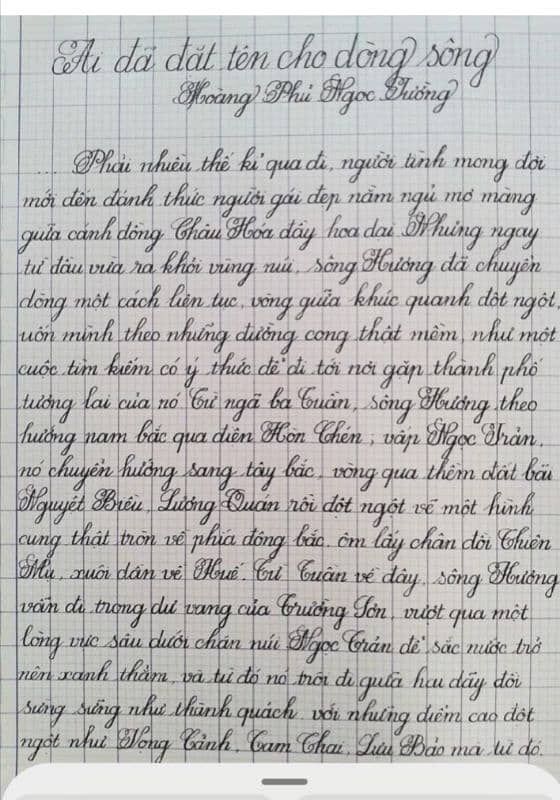 Ai đã đặt tên cho dòng sông
Hoàng Phủ Ngọc Tường
... Phải nhiều thế kỉ qua đi, người tình mong đợi
mới đến đánh thức người gái đẹp nằm ngủ mơ màng
giữa cánh đồng Châu Hóa đầy hoa dại. Nhưng ngay
từ đầu vừa ra khỏi vùng núi, sông Hương đã chuyển
dòng một cách liên tục, vòng giữa khúc quanh đột ngột,
uốn mình theo những đường cong thật mềm, như một
cuộc tìm kiếm có ý thức để đi tới nơi gặp thành phố
tương lai của nó. Từ ngã ba Tuần, sông Hương theo
hướng nam bắc qua điện Hòn Chén; vấp Ngọc Trản,
nó chuyển hướng sang tây bắc, vòng qua thềm đất bãi
Nguyệt Biều, Lương Quán rồi đột ngột vẽ một hình
cung thật tròn về phía đông bắc, ôm lấy chân đồi Thiên
Mụ, xuôi dần về Huế. Từ Tuần về đây, sông Hương
vẫn đi trong dư vang của Trường Sơn, vượt qua một
lòng vực sâu dưới chân núi Ngọc Trản để sắc nước trở
nên xanh thẳm, và từ đó nó trôi đi giữa hai dãy đồi
sừng sững như thành quách, với những điểm cao đột
ngột như Vọng Cảnh, Tam Thai, Lưu Bảo mà từ đó,